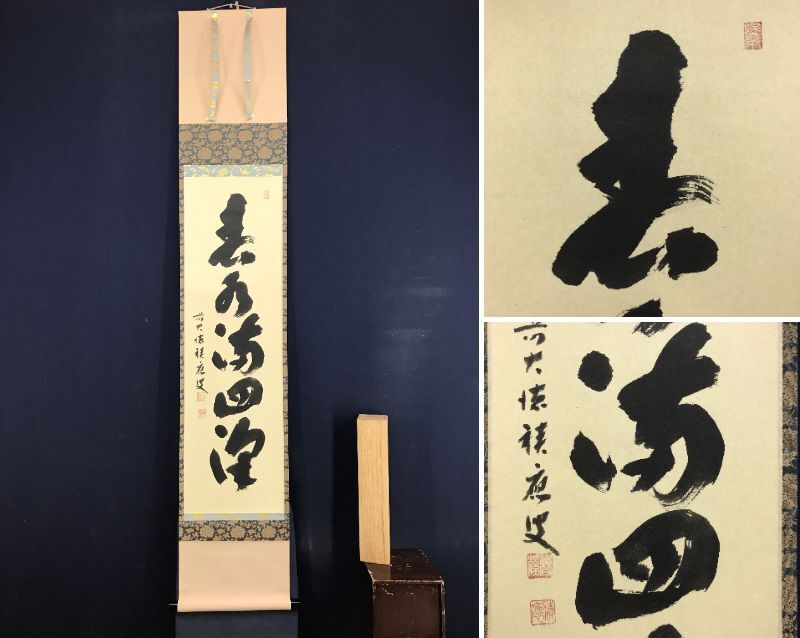 春水満四澤
前大徳積應叟